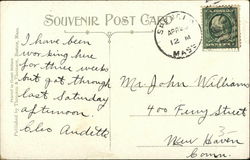 SOUVENIR POST CARD
SPENCER
APR
12 M
MASS.
I have been
working here
for three weeks
but got through
last Saturday
afternoon.
Cleo Audette
Mr John Williams
400 Ferry Street
New Haven
Conn.